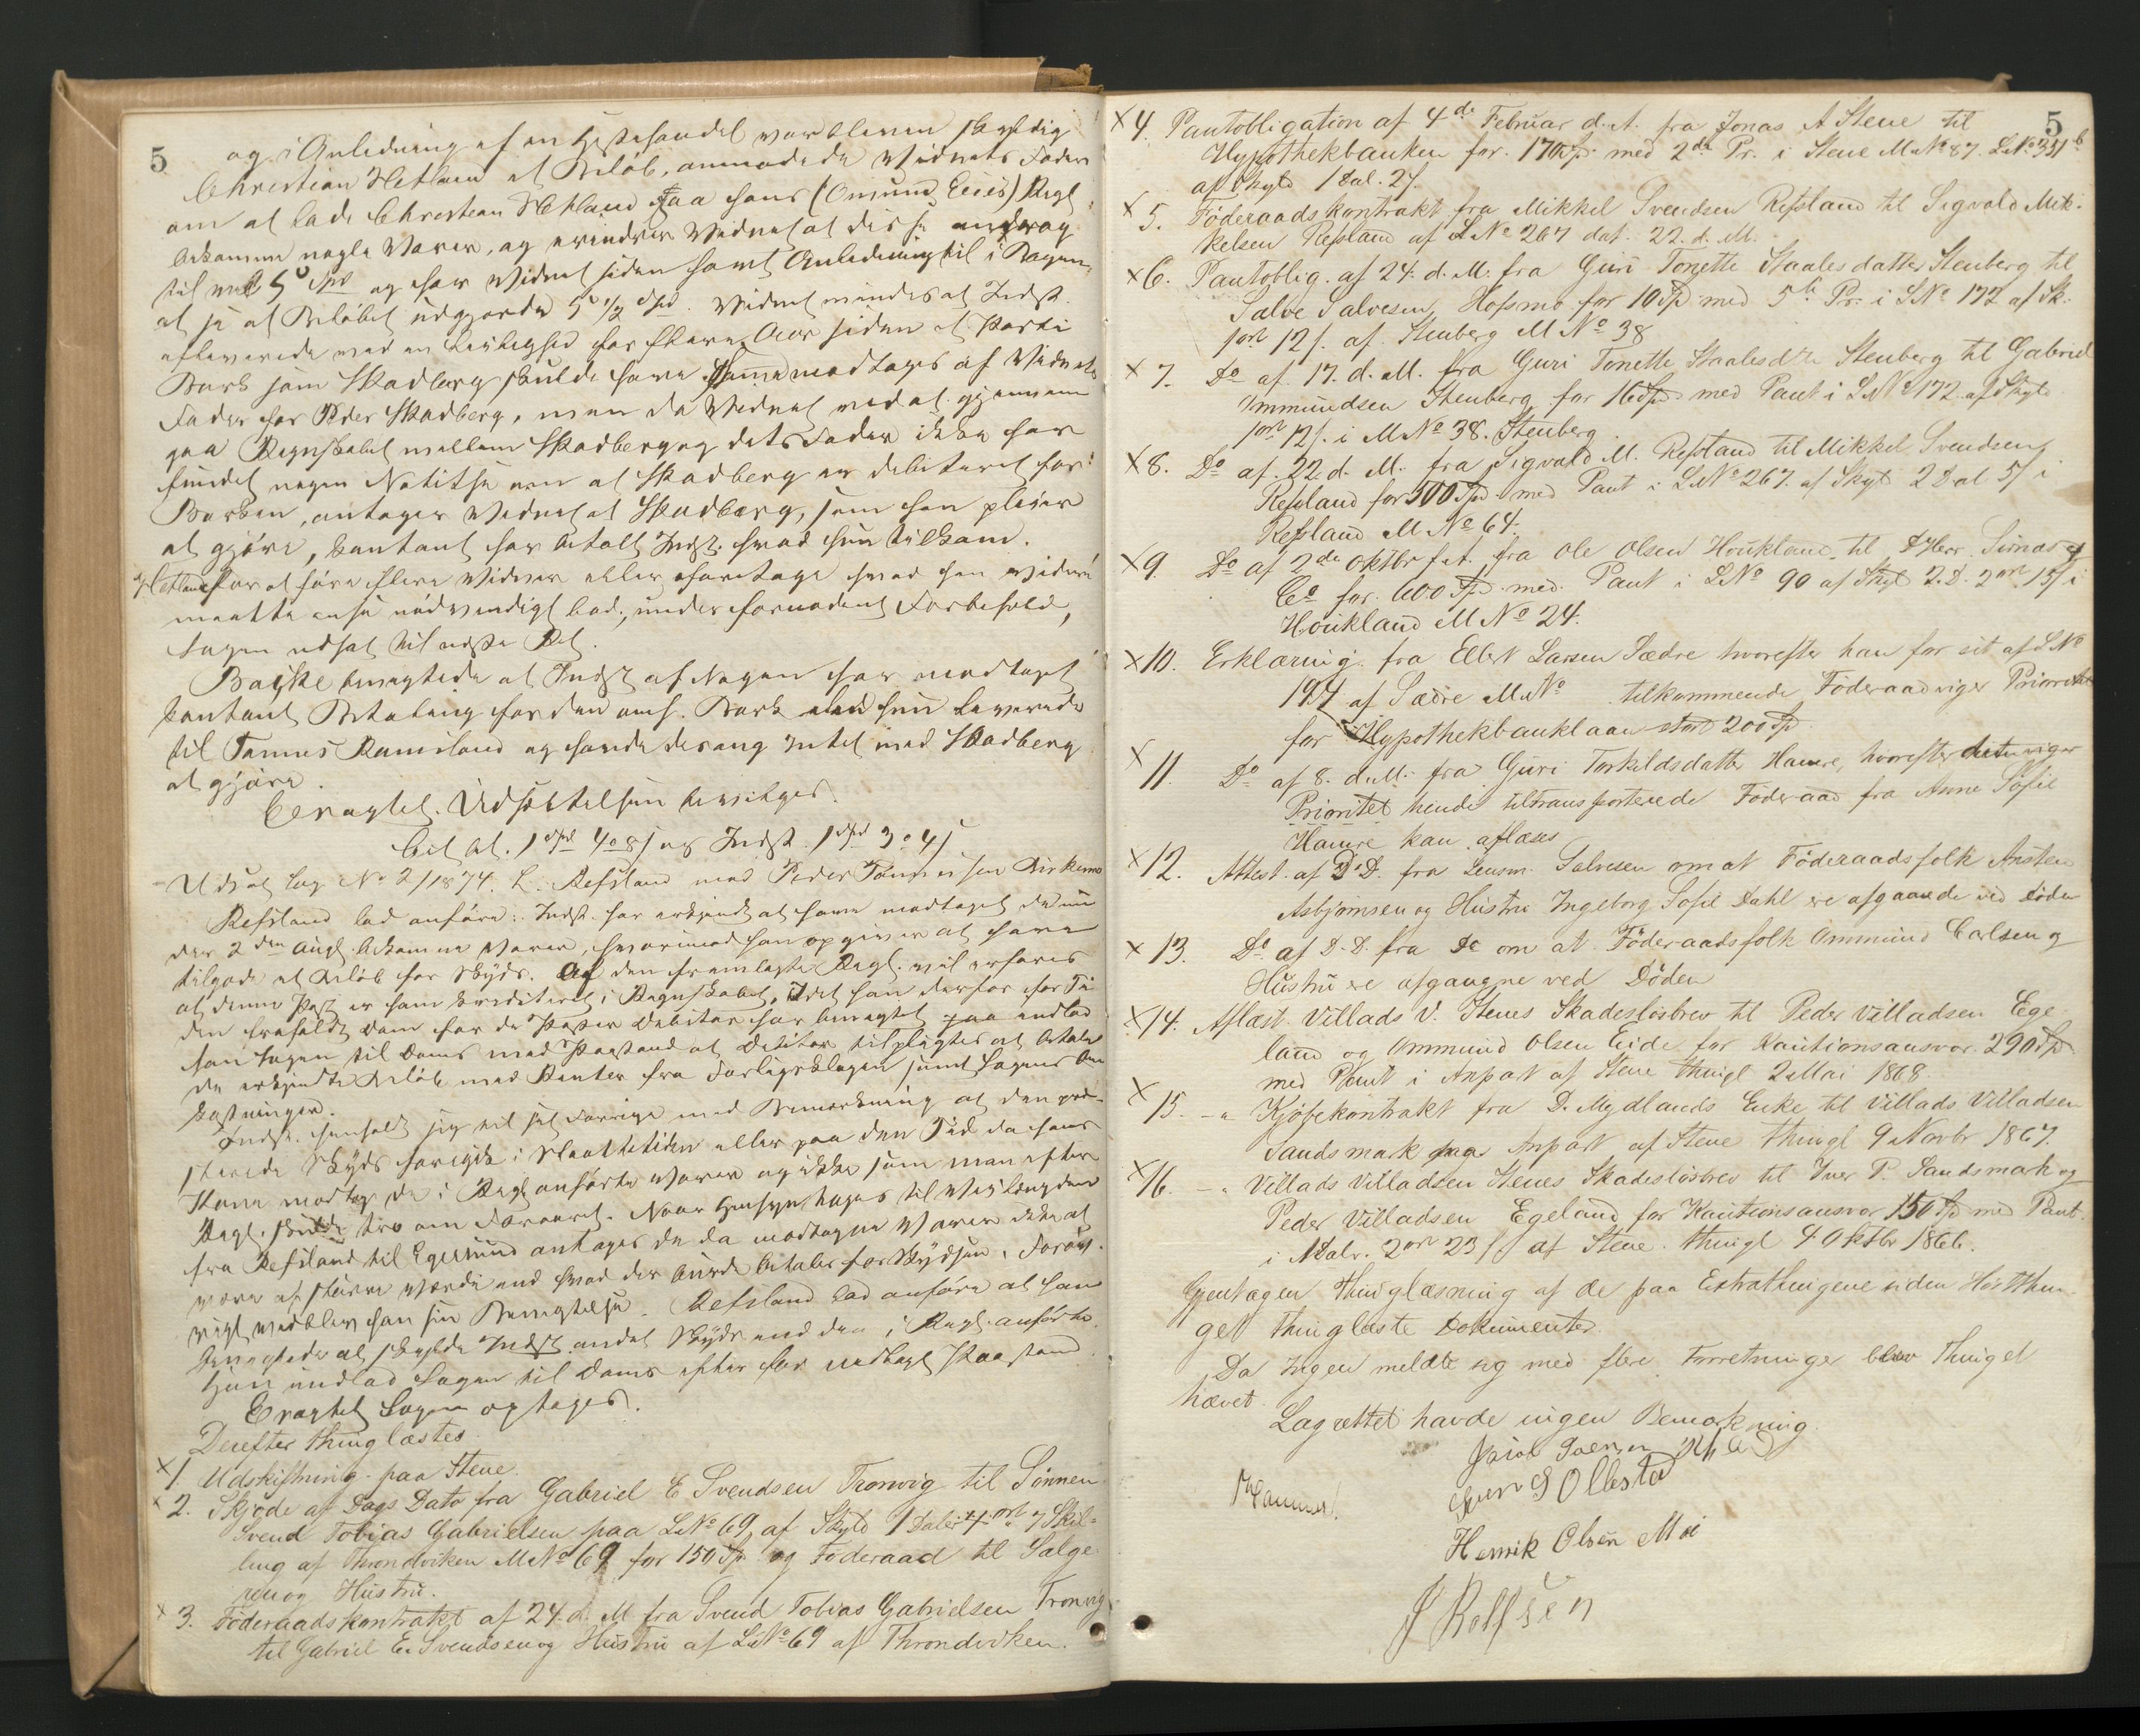 5
og i Anledning af en Hestehandel var bleven skyldig
Christian Hetland et Beløb, anmodede Vidnets Fader
om at lade Christian Hetland faa hans (Omund Eeies) Regl
bekomme nogle Varer, og erindrer Vidnet at disse androg
til med 5 Spd og har Vidnet siden havt Anledning til i Bogen
at se at Beløbet udgjorde 5 1/2 Spd. Vidnet mindes at Indst.
afleverede ved en Leilighed for flere Aar siden et Parti
Bark som Skadberg skulde have modtaget af Vidnets
Fader for Peder Skadberg, men da Vidnet ved at gjennem
gaa Regnskabet mellem Skadberg og dets Fader ikke har
fundet nogen Notitse om at Skadberg er debiteret for
Barken, antager Vidnet at Skadberg, som han pleier
at gjøre, kontant har betalt Indst. hvad hun tilkom.
Hetland for at føre flere Vidner eller foretage hvad han videre
maatte anse nødvendigt bad, under fornødent Forbehold,
Sagen udsat til næste Ret.
Bøiske benegtede at Indst af Nogen har modtaget
kontant Betaling for den omh. Bark hun leverede
til Tønnes Ramsland og havde desang Intet med Skadberg
at gjøre.
Eragtet. Udsættelsen bevilges.
Cit bet. 1 Spd 4 o 8 s og Indst. 1 Spd 3 o 4 s
Udsat Sag No 2/1874. L. Refsland mod Peder Tønnesen Birkemo
Refsland lod anføre: Indst. har erkjendt at have modtaget de
der 2den Augt. bekomne Varer, hvorimod han opgiver at have
tilgode et Beløb for Skyds. Af den fremlagte Regl. vil erfares
at denne Post er ham krediteret i Regnskabet, Idet han derfor for Ti
den frafaldt Dom for de Poster Debitor har benegtet indlod
han Sagen til Doms med Paastand at Debitor tilpligtes at betale
det erkjendte Beløb med Renter fra Forligsklagen samt Sagens Om
kostninger.
Indst. henholdt sig til sit Forrige med Bemærkning at den præ-
sterede Skyds foregik i Slaattetiden eller paa den Tid da hans
Kone modtog de i Regl anførte Varer og ikke som man efter
Regl. skulde tro om Foraaret. Naar Hensyn tages til Veilængden
fra Refsland til Egersund antages de da modtagne Varer ikke at
være af større Værdi end hvad der burde betales for Skydsen. Forøv
rigt vedblev han sin Benegtelse. Refsland lod anføre at han
benegtede at skylde Indst. andet Skyds end den i Regl. anførte.
Han indlod Sagen til Doms efter før nedlagt Paastand.
Eragtet Sagen optages.
Derefter thinglæstes.
x 1 Udskiftning paa Stene.
x 2. Skjøde af Dags Dato fra Gabriel E Svendsen Tronvig til Sønnen
Svend Tobias Gabrielsen paa LNo 69 af Skyld 1 Daler 4 ort 7 Skil-
ling af Throndviken MNo 69 for 150 Sp og Føderaad til Sælge
ren og Hustru.
x 3. Føderaadskontrakt af 24. d. M fra Svend Tobias Gabrielsen Tronvig
til Gabriel E. Svendsen og Hustru af LNo 69 af Throndviken.
5
x 4. Pantobligation af 4de Februar d. A. fra Jonas A Stene til
Hypothekbanken for 170 Sp. med 2de Pr. i Stene MNo 87. LNo 351b
af Skyld 1 Dal. 2 s.
x 5. Føderaadskontrakt fra Mikkel Svendsen Refsland til Sigvald Mik-
kelsen Refsland af LNo 267 dat. 22. d. M.
x 6. Pantoblig. af 24. d. M. fra Guri Tonette Staalesdatter Stenberg til
Salve Salvesen Hofsmo for 10 Spd med 5te Pr. i LNo 172 af Sk.
1 ort 12 s. af Stenberg MNo 38
x 7. Do af 17. d. M. fra Guri Tonette Staalesdtr Stenberg til Gabriel
Ommundsen Stenberg for 16 Spd med Pant i LNo 172 af Skyld
1 ort 12 s. i MNo 38. Stenberg
x 8. Do af 22 d. M. fra Sigvald M. Refsland til Mikkel Svendsen
Refsland for 300 Spd med Pant i LNo 267. af Skyl 2 Dal 5 s i
Refsland MNo 64.
x 9. Do af 2de Oktbr f. A. fra Ole Olsen Houkland til DHerr. Simas &
Co for 600 Spd med Pant i LNo 90 af Skyl 2. D. 2 ort 15 s i
Houkland MNo 24.
x 10. Erklæring fra Ellert Larsen Sædre hvorefter han for sit af LNo
194 af Sædre MNo tilkommende Føderaad viger Prioritet
for Hypothekbanklaan stort 200 Spd
x 11. Do af 8. d. M. fra Guri Torkildsdatter Hamre, hvorefter
Prioritet hende tiltransporterede Føderaad fra Anne Sofie
Hamre kan aflæses
x 12. Attest. af D. D. fra Lensm. Salvesen om at Føderaadsfolk Austen
Asbjørnsen og Hustru Ingeborg Sofie Dahl ere afgaaede ved Døden
x 13. Do af D. D. fra Do om at Føderaadsfolk Ommund Carlsen og
Hustru ere afgaagne ved Døden
x 14. Aflæst. Villads V. Stenes Skadesløsbrev til Peder Villadsen Ege-
land og Ommund Olsen Eide for Kautionsansvar 290 Spd
med Pant i Anpart af Stene thingl 2 Mai 1868.
x 15. - " Kjøbekontrakt fra D. Mydlands Enke til Villads Villadsen
Sandsmark paa Anpart af Stene thingl 9 Novbr 1867.
x 16. - " Villads Villadsen Stenes Skadesløsbrev til Iver P. Sandsmark og
Peder Villadsen Egeland for Kautionsansvar 150 Spd med Pant
i 1 Dalr. 2 ort 23 s af Stene. thingl 4 Oktbr 1866.
Gjentagen Thinglæsning af de paa Extrathingene siden Høstthin-
get thinglæste Dokumenter
Da Ingen meldte sig med flere Forretninger blev Thinget
hævet.
Lagrettet havde ingen Bemærkning.
Hammer.
Ollestad
Henrik Olsen Moi
J Rolfsen